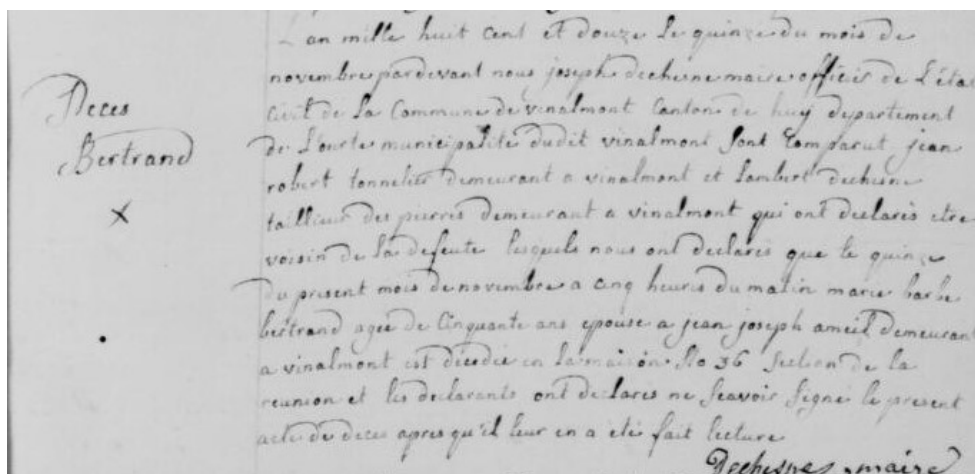 Deces
Bertrand
L'an mille huit cent et douze le quinze du mois de
novembre pardevant nous joseph dechesne maire officier de L'état
civil de la Commune de vinalmont canton de huy departement
de L'ourte municipalité dudit vinalmont sont comparut jean
robert tonnelier demeurant a vinalmont et lambert dechesne
taillieur des pierres demeurant a vinalmont qui ont declarés etre
voisin de la defeute lesquels nous ont declarés que le quinze
du present mois de novembre a cinq heures du matin marie barbe
bertrand agée de cinquante ans epouse a jean joseph ameil demeurant
a vinalmont est décedée en la maison No 36 section de la
reunion et les declarants ont declarés ne scavoir signé le present
acte de deces apres qu'il leur en a eté fait lecture
Dechesne maire